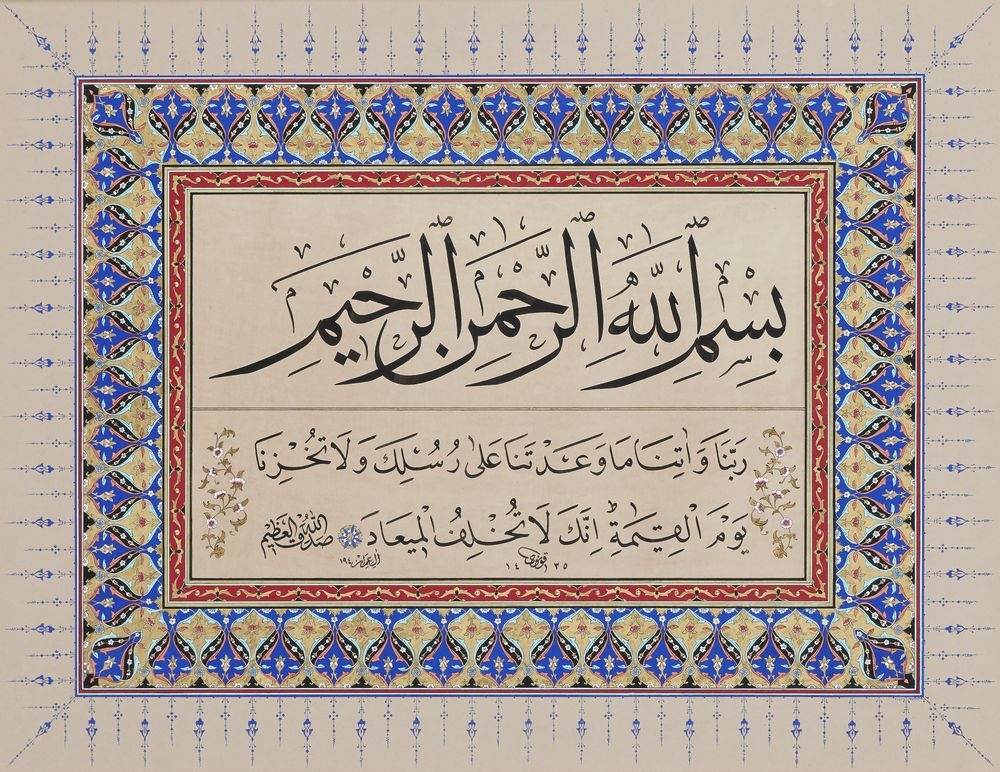 بِسْمِ اللهِ الرَّحْمٰنِ الرَّحِيمِ
رَبَّنَا وَاٰتِنَا مَا وَعَدْتَنَا عَلٰى رُسُلِكَ وَلَا تُخْزِنَا
يَوْمَ الْقِيٰمَةِ ۜ اِنَّكَ لَا تُخْلِفُ الْمِيعَادَ صدق الله العظيم
١٤٣٥ آل عمران ١٩٤